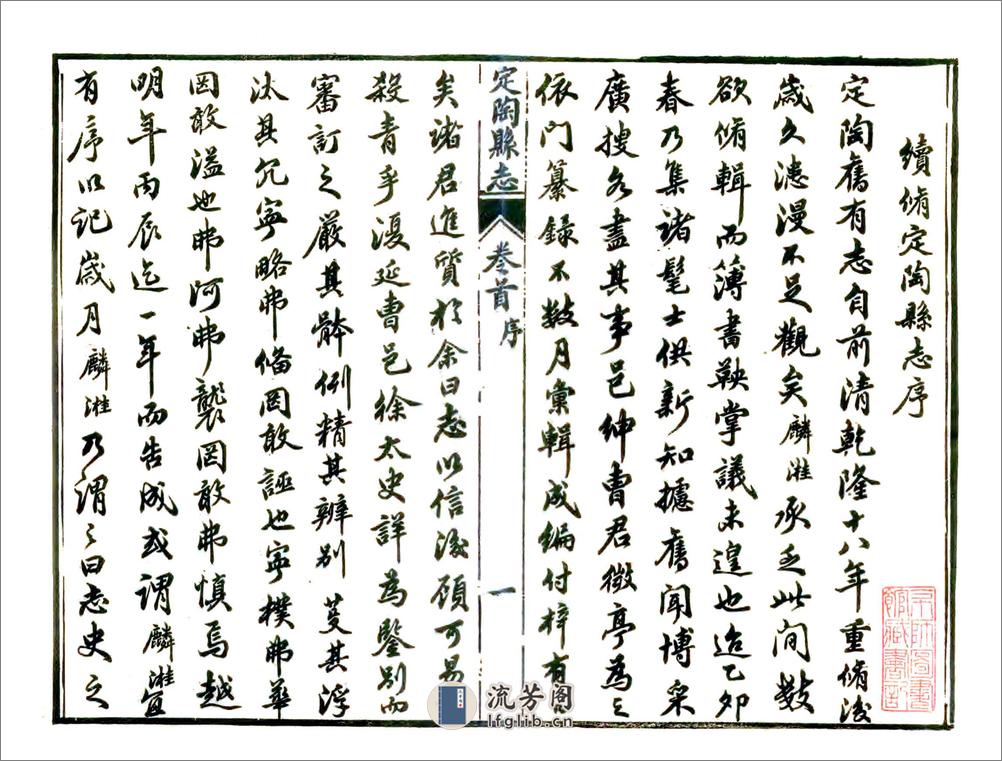 續脩定陶縣志序
定陶舊有志自前清乾隆十八年重脩後
歲久漶漫不足觀矣麟淮承乏此間數
欲脩輯而簿書鞅掌議未遑也迨乙卯
春乃集諸髦士供新知攄舊聞博采
廣搜各盡其事邑紳曹君徵亭為之
依門纂錄不數月彙輯成編付梓有
定陶縣志
卷首
序
一
矣諸君進質於余曰志以信後顧可易
殺青乎復延曹邑徐太史詳為鑒別而
審訂之嚴其體例精其辨別芟其浮
汰其冗寧略弗俻罔敢誣也寧樸弗華
罔敢溢也弗阿弗襲罔敢弗慎焉越
明年丙辰迄一年而告成或謂麟淮宜
有序以記歲月麟淮乃謂之曰志史之
流芳阁
lfglib.cn